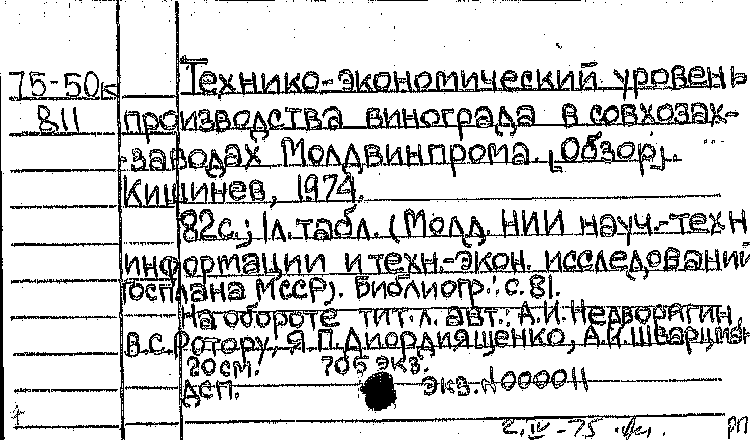 75-50к Технико-экономический уровень
811 производства винограда в совхозах-
-заводах Молдвинпрома. [Обзор].
Кишинев, 1974.
82с.; 1л.табл. (Молд. НИИ науч.-техн
информации и техн.-экон. исследований
Госплана МССР). Библиогр.: с.81.
На обороте тит.л. авт.: А.И.Недворягин,
В.С.Ротору, Я.П.Диордиященко, А.И.Шварцман
20см. 70б экз.
ДСП. Экз.N000011
2.IV-75 РП